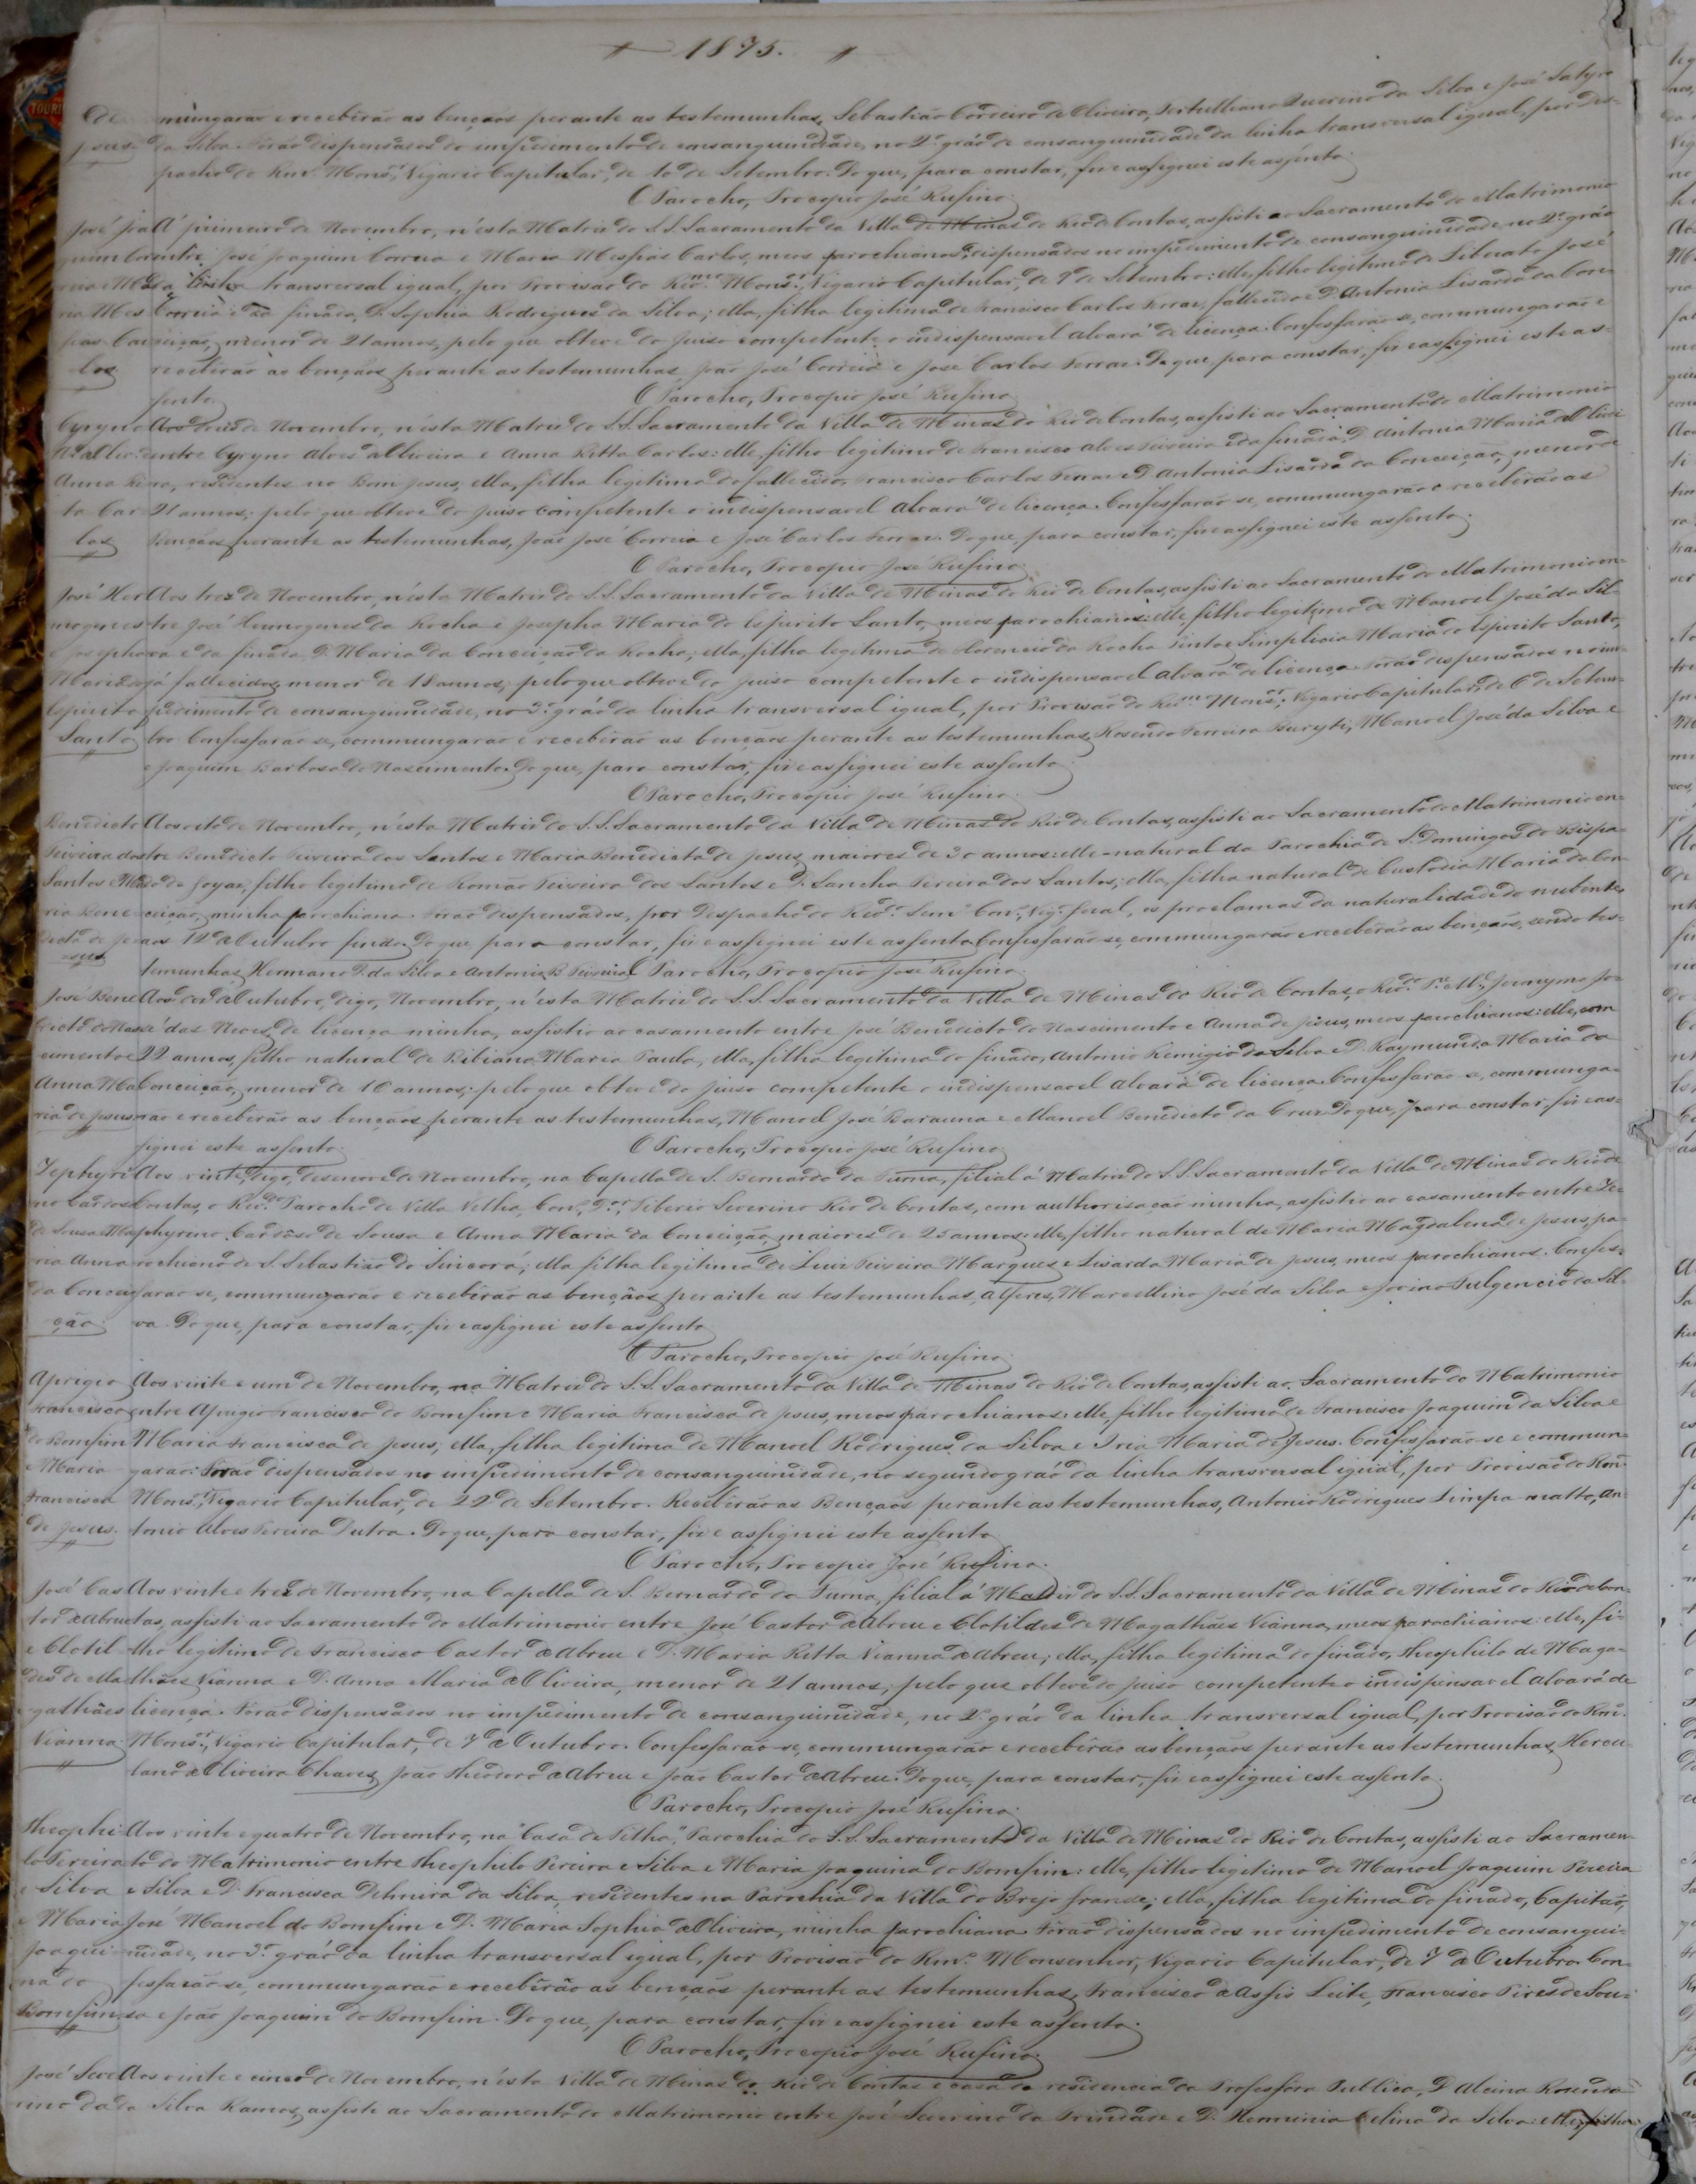 1875.
mungarão e receberão as bençaos perante as testemunhas, Sebastião Cordeiro de Oliveira, Tertulliano Querino da Silva e José Satyro
Jesus. da Silva. Forão dispensados do impedimento de consanguinidade, no 2º gráo de consanguinidade da linha transversal igual, por Des-
pacho do Rmº Monsʳ Vigario Capitular, de 10 de Setembro. Do que, para constar, fiz e assignei este assento.
O Parocho, Procopio José Rufino.
José Joa A' primeiro de Novembro, n'ésta Matriz do S.S. Sacramento da Villa de Minas do Rio de Contas, assisti ao Sacramento do Matrimonio
quim Cor entre José Joaquim Correia e Maria Messias Carlos, meus parochianos, dispensados no impedimento de consanguinidade no 2º gráo
reia e Ma da linha transversal igual, por Provisão do Revmo Monsʳ Vigario Capitular, de 9 de Setembro: elle, filho legitimo de Liberato José
ria Mes Correia e da finada, D. Sophia Rodrigues da Silva; ella, filha legitima de Francisco Carlos Ferraz, fallecido e D. Antonia Lisarda da Con-
sias Car ceição, menor de 21 annos, pelo que obteve do juiso competente o indispensavel alvará de licença. Confessarão-se, commungarão e
los receberão as bençãos perante as testemunhas, João José Correia e José Carlos Ferraz. Do que, para constar, fiz e assignei este as-
sento. O Parocho, Procopio José Rufino.
Cyryno Aos dous de Novembro, n'ésta Matriz do S.S. Sacramento da Villa de Minas do Rio de Contas, assisti ao Sacramento do Matrimonio
entre Cyryno Alves d'Oliveira e Anna Ritta Carlos: elle, filho legitimo de Francisco Alves Teixeira e da finada, D. Antonia Maria d'Olivei
Anna Rit ra, residentes no Bom Jesus, ella, filha legitima do fallecido, Francisco Carlos Ferraz e D. Antonia Lisarda da Conceição, menor de
ta Car 21 annos; pelo que obteve do juiso competente o indispensavel alvará de licença. Confessarão-se, commungarão e receberão as
los Bençãos perante as testemunhas, João José Correia e José Carlos Ferraz. Do que, para constar, fiz e assignei este assento.
O Parocho, Procopio José Rufino.
José Her Aos tres de Novembro, n'ésta Matriz do S.S. Sacramento da Villa de Minas do Rio de Contas, assisti ao Sacramento do Matrimonio en-
mogenes tre José Hermogenes da Rocha e Josepha Maria do Espirito Santo, meos parochianos: elle, filho legitimo de Manoel José da Sil-
e Josepha va e da finada D. Maria da Conceição da Rocha; ella, filha legitima de Florencio da Rocha Pinto e Simplicia Maria do Espirito Santo,
Maria do já fallecidos, menor de 18 annos, pelo que obteve do juiso competente o indispensavel alvará de licença. Forão dispensados no im-
Espirito pedimento de consanguinidade, no 3º gráo da linha transversal igual, por Provisão do Revmo Monsʳ Vigario Capitular, de 6 de Setem-
Santo bro. Confessarão-se, commungarão e receberão as bençãos perante as testemunhas, Rosendo Ferreira Buryti, Manoel José da Silva e
e Joaquim Barbosa do Nascimento. Do que, para constar, fiz e assignei este assento.
O Parocho, Procopio José Rufino.
Benedicto Aos oito de Novembro, n'ésta Matriz do S.S. Sacramento da Villa de Minas do Rio de Contas, assisti ao Sacramento do Matrimonio en-
Teixeira dos tre Benedicto Teixeira dos Santos e Maria Benedicta de Jesus, maiores de 30 annos: elle - natural da Parochia de S. Domingos do Bispa-
Santos e Ma do de Goyaz, filho legitimo de Romão Teixeira dos Santos e D. Sancha Pereira dos Santos; ella, filha natural de Custodia Maria da Con-
ria Bene- ceição, minha parochiana. Forão dispensados, por Despacho do Revdo Vigº Geral, os proclamas da naturalidade do nubente
dicta de Je aos 12 d'Outubro findo. Do que, para constar, fiz e assignei este assento. Confessarão-se, commungarão e receberão as bençãos, sendo tes-
sus temunhas, Hermano F. da Silva e Antonio B. Teixeira. O Parocho, Procopio José Rufino.
José Bene Aos dez d'Outubro, digo, Novembro, n'ésta Matriz do S.S. Sacramento da Villa de Minas do Rio de Contas, o Revdo Pe Me Jeronymo Jo-
dicto do Nas sé das Neves, de licença minha, assistio ao casamento entre José Benedicto do Nascimento e Anna de Jesus, meos parochianos: elle, com
cimento e 22 annos, filho natural de Bibiana Maria Paula, ella, filha legitima do finado, Antonio Remigio da Silva e D. Raymunda Maria da
Anna Ma Conceição, menor de 16 annos; pelo que obteve do juiso competente o indispensavel alvará de licença. Confessarão-se, communga-
ria de Jesus rão e receberão as bençãos perante as testemunhas, Manoel José Barauna e Manoel Benedicto da Cruz. Do que, para constar, fiz e as-
signei este assento. O Parocho, Procopio José Rufino.
Zephyri Aos vinte, digo, desenove de Novembro, na Capella de S. Bernardo da Furna, filial á Matriz do S.S. Sacramento da Villa de Minas do Rio de
no Cardoso Contas, o Revdo Parocho de Villa Velha, Conº Dor Tiberio Severino Rio de Contas, com authorisação minha, assistio ao casamento entre Ze-
de Sousa e Ma phyrino Cardôso de Sousa e Anna Maria da Conceição, maiores de 25 annos: elle, filho natural de Maria Magdalena de Jesus, pa-
ria Anna rochiano de S. Sebastião do Sincorá; ella filha legitima de Luiz Teixeira Marques e Lisarda Maria de Jesus, meos parochianos. Confes-
da Concei sarão-se, commungarão e receberão as bençãos, perante as testemunhas, Alferes, Marcellino José da Silva e Jovino Fulgencio da Sil-
ção va. Do que, para constar, fiz e assignei este assento
O Parocho, Procopio José Rufino.
Aprigio Aos vinte e um de Novembro, na Matriz do S.S. Sacramento da Villa de Minas do Rio de Contas, assisti ao Sacramento do Matrimonio
Francisco entre Aprigio Francisco do Bomfim e Maria Francisca de Jesus, meos parochianos: elle, filho legitimo de Francisco Joaquim da Silva e
do Bomfim Maria Francisca de Jesus; ella, filha legitima de Manoel Rodrigues da Silva e Iria Maria de Jesus. Confessarão-se e commun-
e Maria garão. Forão dispensados no impedimento de consanguinidade, no segundo gráo da linha transversal igual, por Provisão do Rmº
Francisca Monsʳ, Vigario Capitular, de 22 de Setembro. Receberão as Bençãos perante as testemunhas, Antonio Rodrigues Limpa-matto, An-
de Jesus. tonio Alves Pereira Dutra. Do que, para constar, fiz e assignei este assento
O Parocho, Procopio José Rufino.
José Cas Aos vinte e tres de Novembro, na Capella de S. Bernardo da Furna, filial á Matriz do S.S. Sacramento da Villa de Minas do Rio de Con-
tor d'Abreu tas, assisti ao Sacramento do Matrimonio entre José Castor d'Abreu e Clotildes de Magalhães Vianna, meos parochianos: elle, fi-
e Clotil- lho legitimo de Francisco Castor d'Abreu e D. Maria Ritta Vianna d'Abreu; ella, filha legitima do finado, Theophilo de Maga-
des de Ma lhães Vianna e D. Anna Maria d'Oliveira, menor de 21 annos; pelo que obteve do juiso competente o indispensavel alvará de
galhães licença. Forão dispensados no impedimento de consanguinidade, no 2º gráo da linha transversal igual, por Provisão do Rmº
Vianna Monsʳ, Vigario Capitular, de 7 d'Outubro. Confessarão-se, commungarão e receberão as bençãos perante as testemunhas, Hercu-
lano d'Oliveira Chaves, João Theodoro d'Abreu e João Castor d'Abreu. Do que, para constar, fiz e assignei este assento.
O Parocho, Procopio José Rufino.
Theophi Aos vinte e quatro de Novembro, na "Casa de Telha", Parochia do S.S. Sacramento da Villa de Minas do Rio de Contas, assisti ao Sacramen-
lo Pereira to do Matrimonio entre Theophilo Pereira e Silva e Maria Joaquina do Bomfim: elle, filho legitimo de Manoel Joaquim Pereira
e Silva e Silva e D. Francisca Delmira da Silva, residentes na Parochia da Villa do Brejo Grande; ella, filha legitima do finado, Capitão,
e Maria José Manoel do Bomfim e D. Maria Sophia d'Oliveira, minha parochiana. Forão dispensados no impedimento de consangui-
Joaqui- nidade, no 3º gráo da linha transversal igual, por Provisão do Rmº Monsenhor, Vigario Capitular, de 7 d'Outubro. Con-
na do fessarão-se, commungarão e receberão as bençãos perante as testemunhas, Francisco d'Assis Leite, Francisco Pires de Sou-
Bomfim sa e João Joaquim do Bomfim. Do que, para constar, fiz e assignei este assento.
O Parocho, Procopio José Rufino.
José Seve Aos vinte e cinco de Novembro, n'ésta Villa de Minas do Rio de Contas e casa de residencia da Professora Publica, D. Alcina Rosenda
rino da da Silva Ramos, assisti ao Sacramento do Matrimonio entre José Severino da Trindade e D. Herminia Celina da Silva: elle, filho